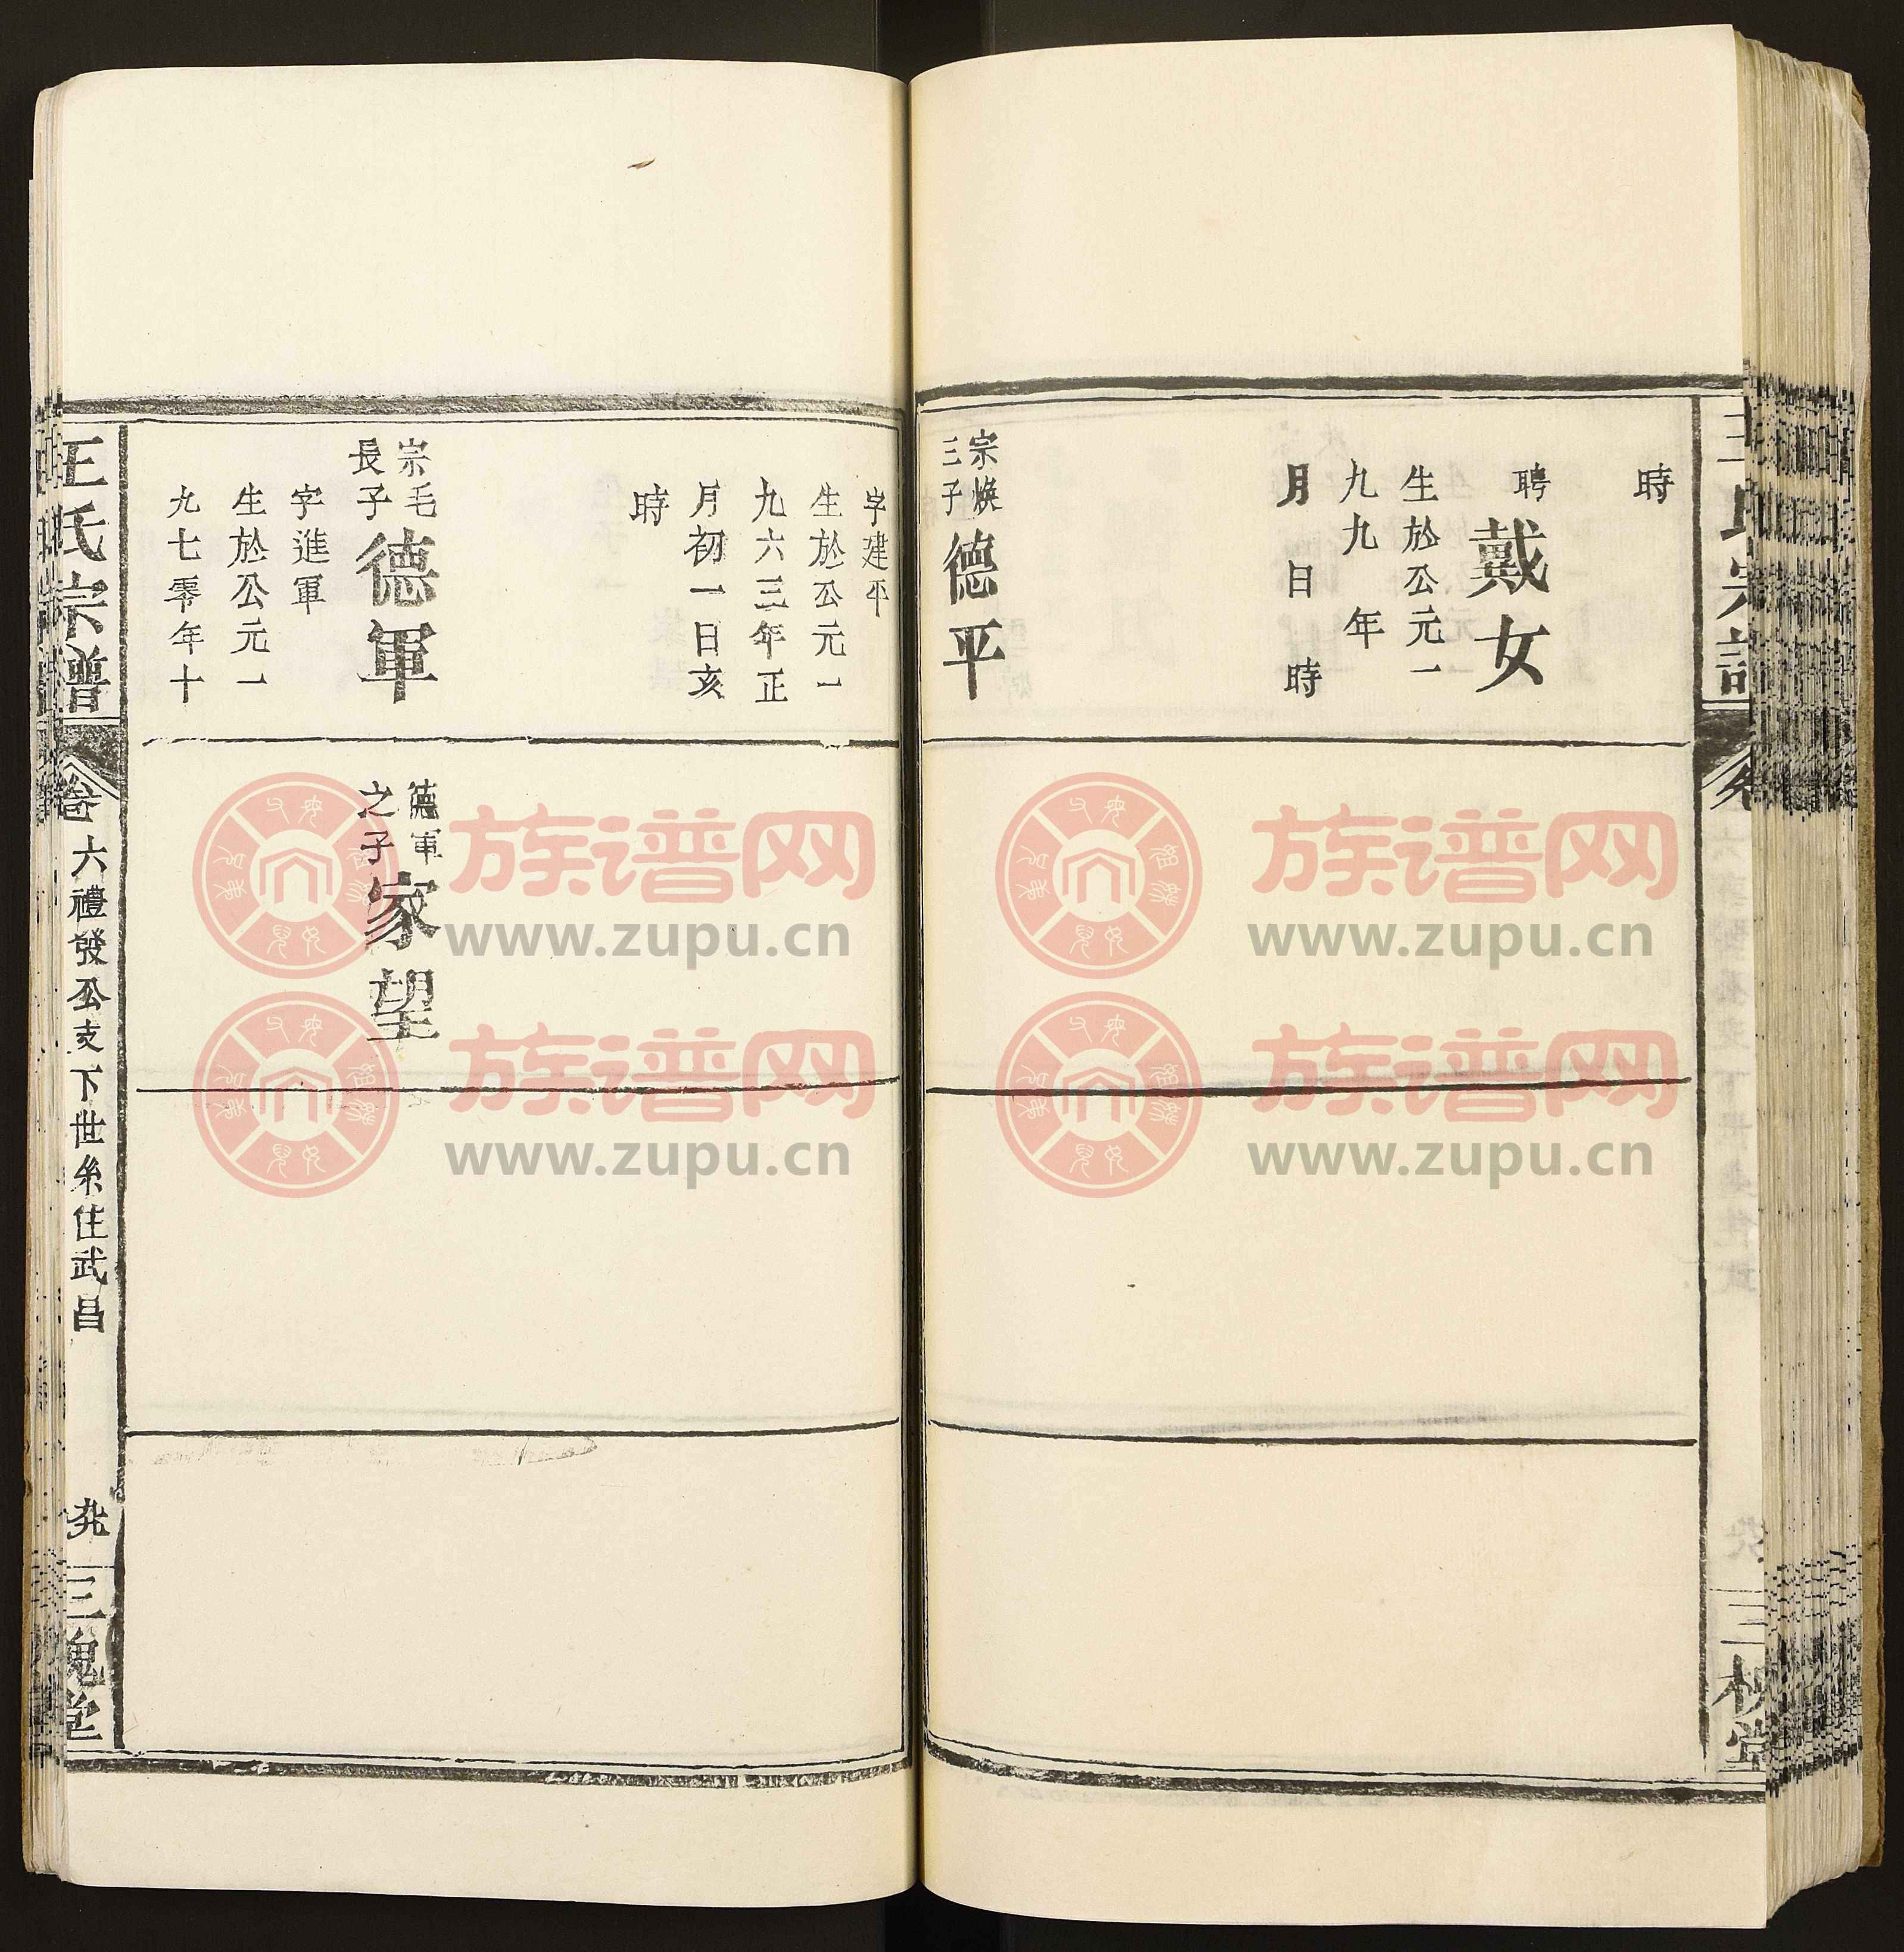 時
聘
戴女
生於公元一
九九 年
月 日 時
宗焕
三子
德平
字建平
生於公元一
九六三年正
月初一日亥
時
宗毛
長子
德軍
字進軍
生於公元一
九七零年十
德軍
之子
家望
王氏宗譜
卷六禮發公支下世系住武昌
三槐堂
三槐堂
族谱网
www.zupu.cn
族谱网
www.zupu.cn
族谱网
www.zupu.cn
族谱网
www.zupu.cn